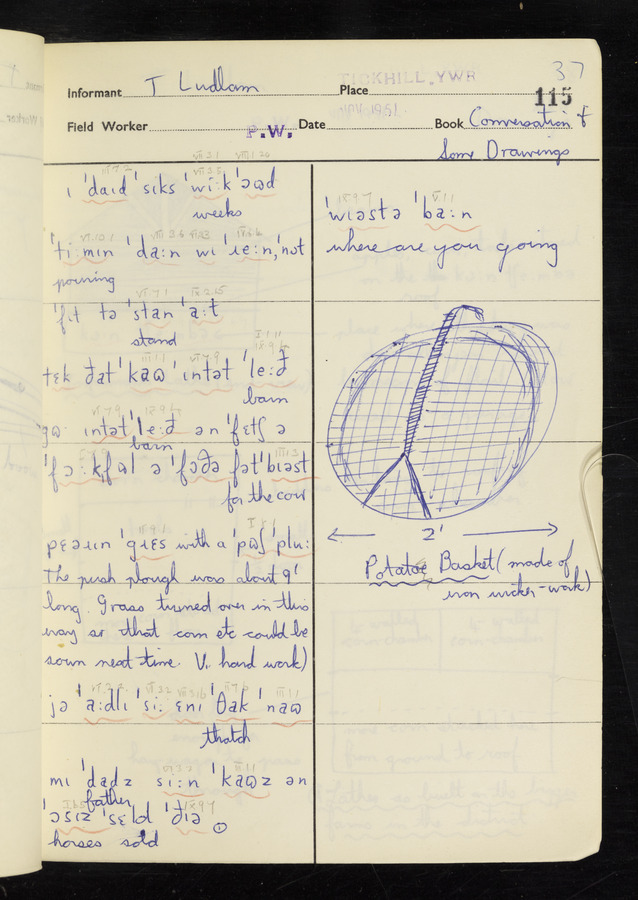 37
TICKHILL, YWR
Informant T Ludlam Place 115
NOV 1961
Field Worker P.W. Date Book Conversation &
Some Drawings
ɪ ˈdaɪd ˈsɪks ˈwiːk ˈəɷd
weeks
ˈtiːmɪn ˈdaːn wɪ ˈɹeːn, ˈnɒt
pouring
ˈfɪt tə ˈstan ˈaːt
stand
tɛk ðat ˈkaɷ ˈɪntət ˈleːð
barn
gɷ ɪntət ˈleːð ən ˈfɛtʃ ə
barn
ˈfɔːkfɷl ə ˈfɒðə fətˈbɪəst
for the cow
pɛəɹɪn ˈgɹɛs with a ˈpɷʃ ˈpluː
The push plough was about 9'
long. Grass turned over in this
way so that corn etc could be
sown next time. V. hard work)
jə ˈaːdlɪ ˈsiː ɛnɪ ˈθak ˈnaɷ
thatch
mɪ ˈdadz siːn ˈkaɷz ən
father
ˈɔsɪz ˈsɛld ˈðɪə
horses sold
ˈwɪəstə ˈbaːn
where are you going
2'
Potatoe Basket (made of
iron wicker-work)